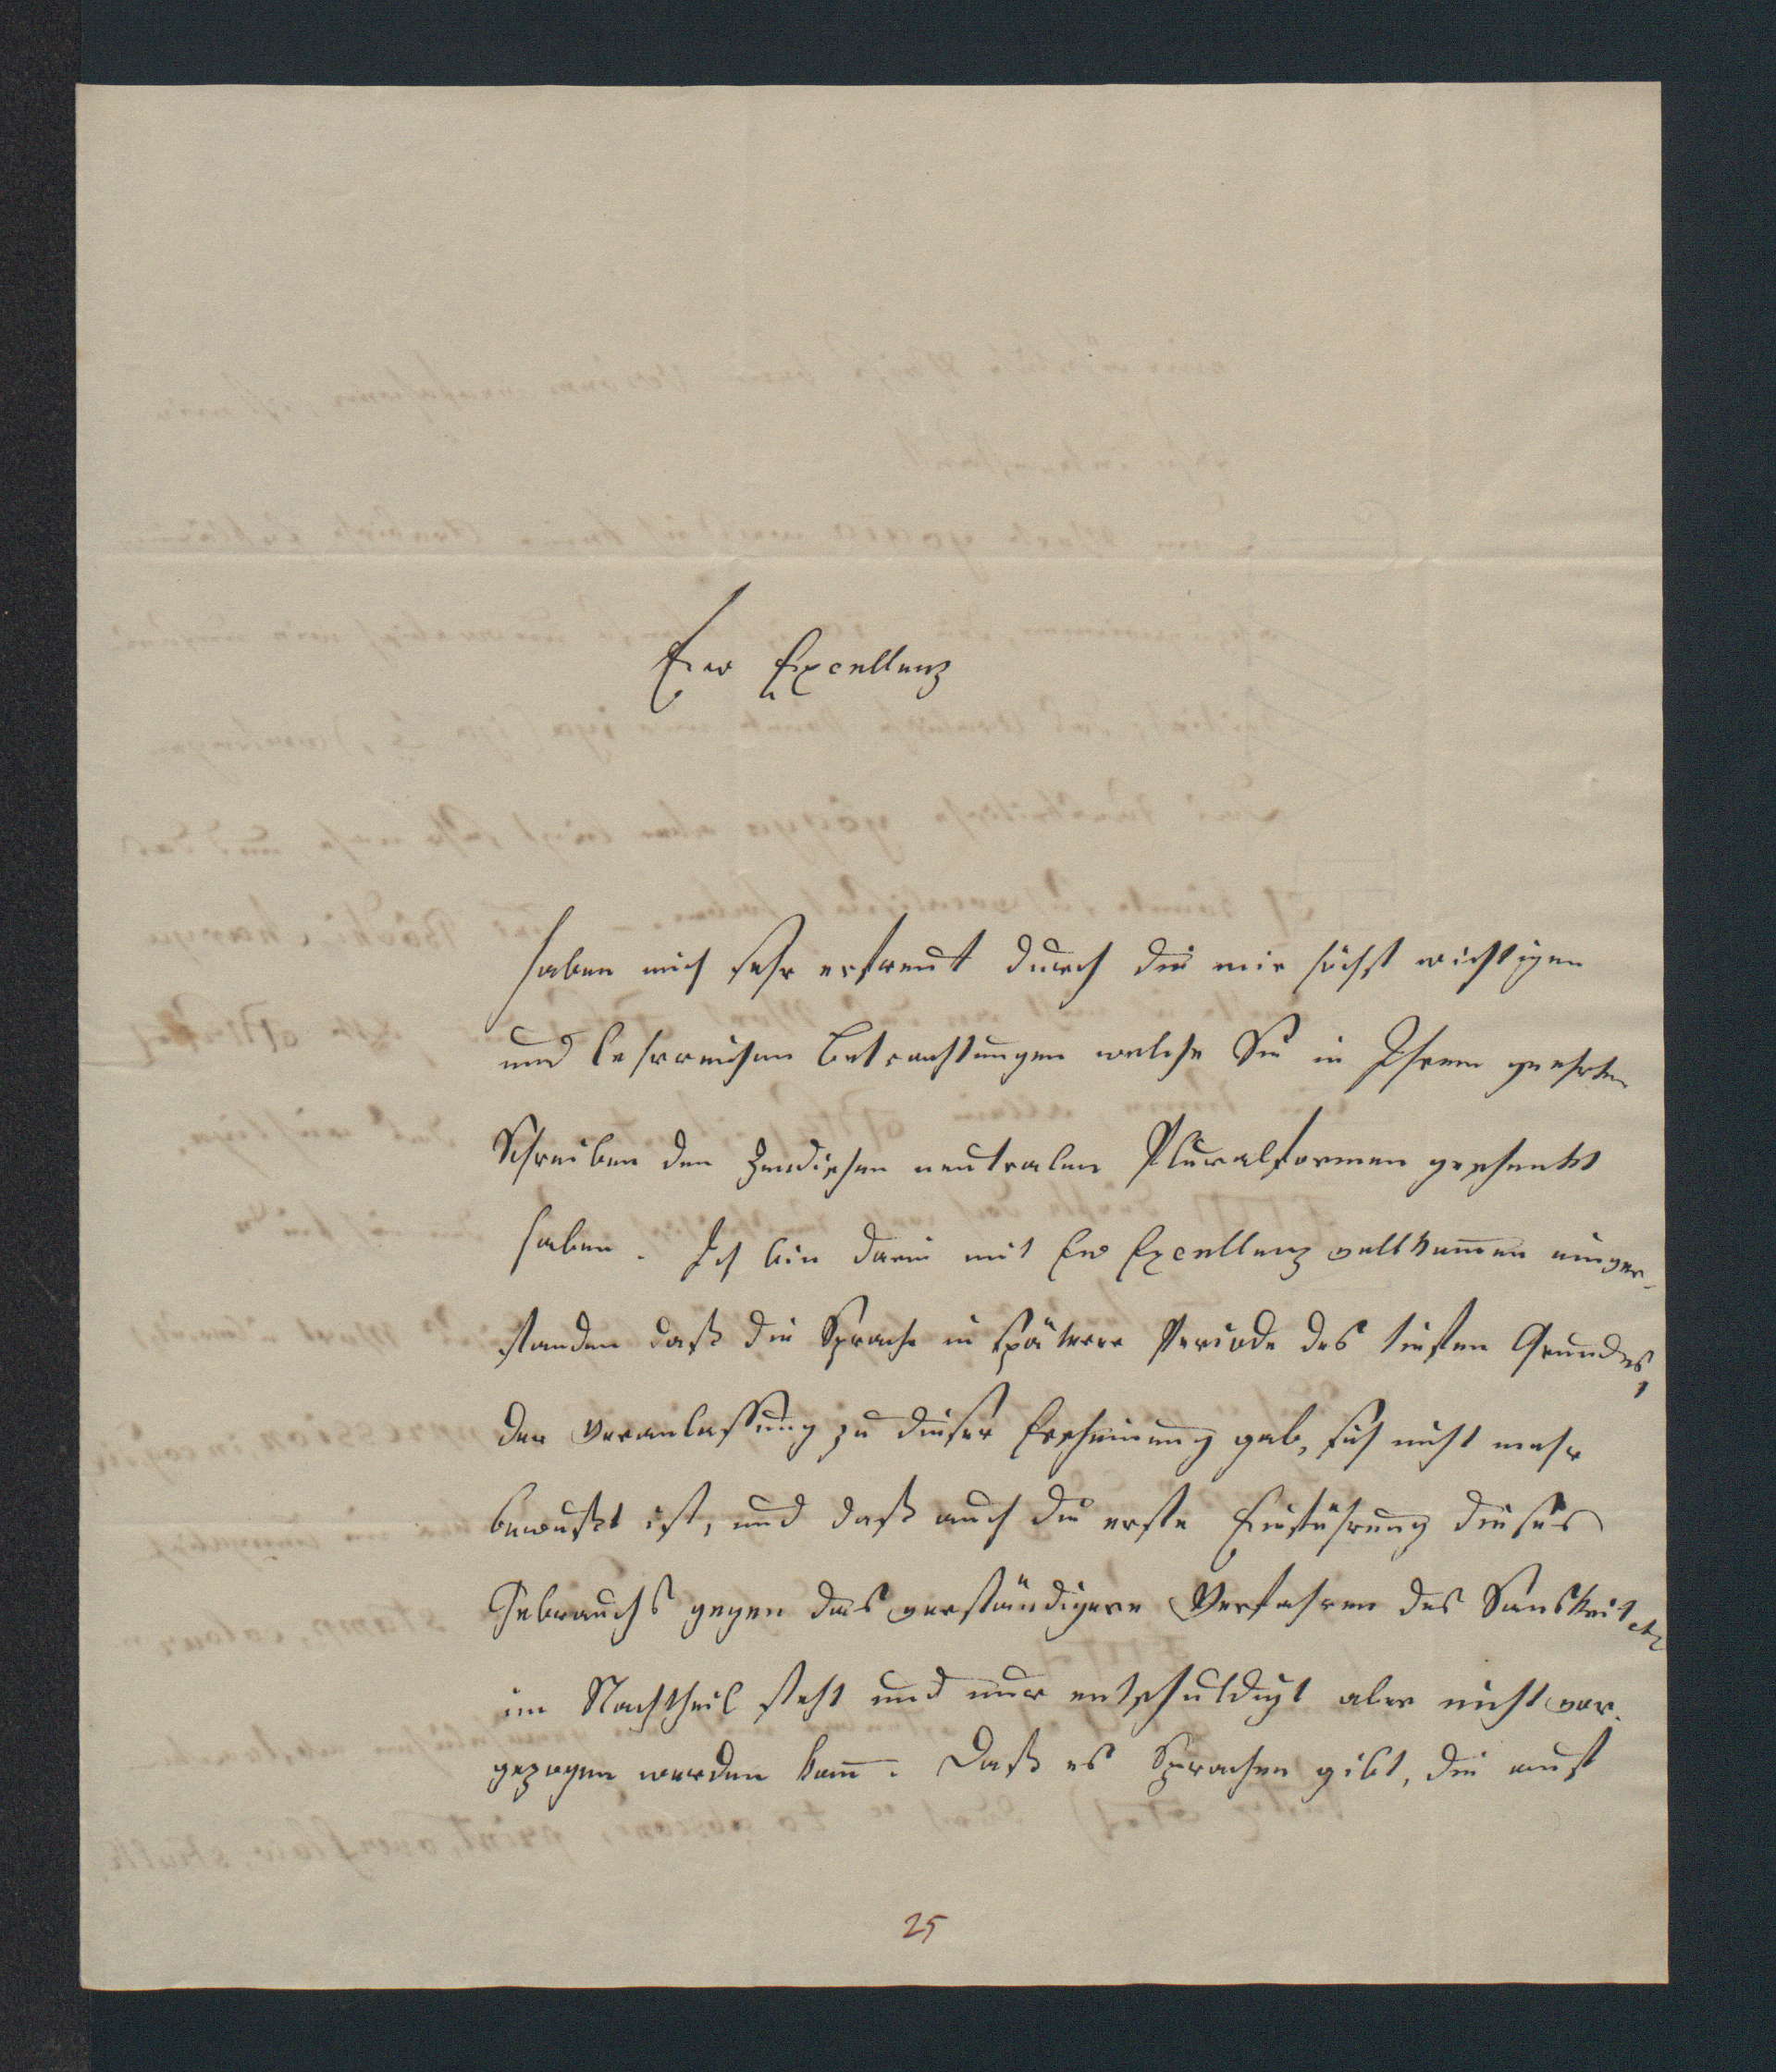 Ew Excellenz
haben mich sehr erfreut durch die mir höchst wichtigen
und lehrreichen Betrachtungen welche Sie in Ihrem geehrten
Schreiben den Zendischen neutralen Pluralformen geschenkt
haben. Ich bin darin mit Ew Excellenz vollkom̄en einver-
standen daß die Sprache in spätrer Periode des tiefen Grundes,
der Veranlassung zu dieser Erscheinung gab, sich nicht mehr
bewußt ist, und daß auch die erste Einführung dieses
Gebrauchs gegen das verständigere Verfahren des Sanskrit etc
im Nachtheil steht und nur entschuldigt aber nicht vor-
gezogen werden kan̄. Daß es Sprachen gibt, die auch
25